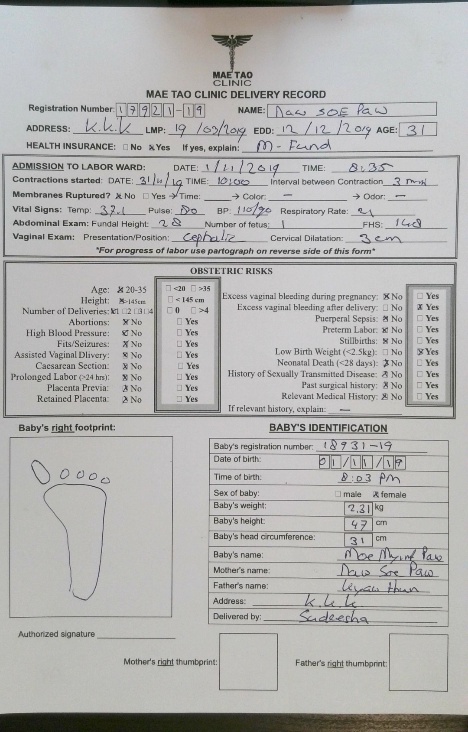 MAE TAO
CLINIC
MAE TAO CLINIC DELIVERY RECORD
Registration Number: 17921-19 NAME: Daw SOE Paw
ADDRESS: K.K.K LMP: 19 /03/2019 EDD: 12/12/2019 AGE: 31
HEALTH INSURANCE: ☐ No ☒ Yes If yes, explain: M-Fund
ADMISSION TO LABOR WARD: DATE: 1/11/2019 TIME: 8:35
Contractions started: DATE: 31/ /19 TIME: 10:00 Interval between Contraction 3
Membranes Ruptured? ☒ No ☐ Yes → Time: → Color: — → Odor: —
Vital Signs: Temp: 37.1 Pulse: 80 BP: 110/90 Respiratory Rate: 21
Abdominal Exam: Fundal Height: 28 Number of fetus: 1 FHS: 148
Vaginal Exam: Presentation/Position: Cephalic Cervical Dilatation: 3cm
*For progress of labor use partograph on reverse side of this form*
OBSTETRIC RISKS
Age: ☒ 20-35 ☐ <20 ☐ >35
Height: ☒ >145cm ☐ < 145 cm
Number of Deliveries: ☒1 ☐2 ☐3 ☐4 ☐ 0 ☐ >4
Abortions: ☒ No ☐ Yes
High Blood Pressure: ☒ No ☐ Yes
Fits/Seizures: ☒ No ☐ Yes
Assisted Vaginal Dlivery: ☒ No ☐ Yes
Caesarean Section: ☒ No ☐ Yes
Prolonged Labor (>24 hrs): ☒ No ☐ Yes
Placenta Previa: ☒ No ☐ Yes
Retained Placenta: ☒ No ☐ Yes
Excess vaginal bleeding during pregnancy: ☒ No ☐ Yes
Excess vaginal bleeding after delivery: ☐ No ☒ Yes
Puerperal Sepsis: ☒ No ☐ Yes
Preterm Labor: ☒ No ☐ Yes
Stillbirths: ☒ No ☐ Yes
Low Birth Weight (<2.5kg): ☐ No ☒ Yes
Neonatal Death (<28 days): ☒ No ☐ Yes
History of Sexually Transmitted Disease: ☒ No ☐ Yes
Past surgical history: ☒ No ☐ Yes
Relevant Medical History: ☒ No ☐ Yes
If relevant history, explain: —
Baby's right footprint:
BABY'S IDENTIFICATION
Baby's registration number: 18931-19
Date of birth: 01/11/19
Time of birth: 8:03 PM
Sex of baby: ☐ male ☒ female
Baby's weight: 2.31 kg
Baby's height: 47 cm
Baby's head circumference: 31 cm
Baby's name: Moe Myint Paw
Mother's name: Daw Soe Paw
Father's name: Kyaw Htun
Address: K.K.K
Delivered by: Sadeesha
Authorized signature
Mother's right thumbprint:
Father's right thumbprint: